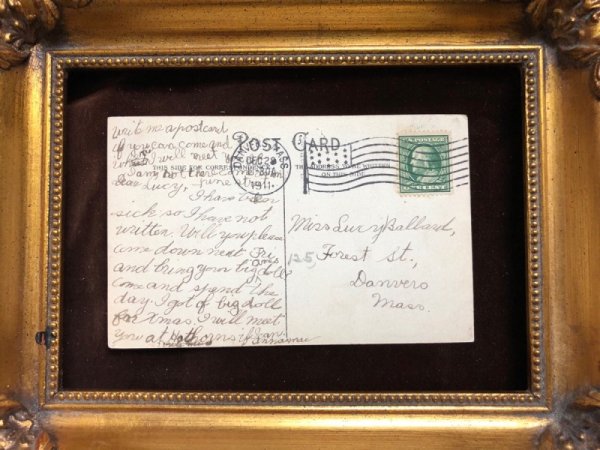 write me a postcard
if you can come and
I will meet
I am not there
POST CARD.
THIS SIDE FOR CORRESPONDENCE
THE ADDRESS
ON THIS SIDE
MASS.
DEC 28
1911
U.S. POSTAGE
1 CENT 1
Dear Lucy,
I have been
sick so I have not
written. Will you please
come down next Fri
and bring your big doll
come and spend the
day. I got a big doll
for Xmas. I will meet
you at
if I can.
Miss Lucy Ballard,
125 Forest St.,
Danvers
Mass.